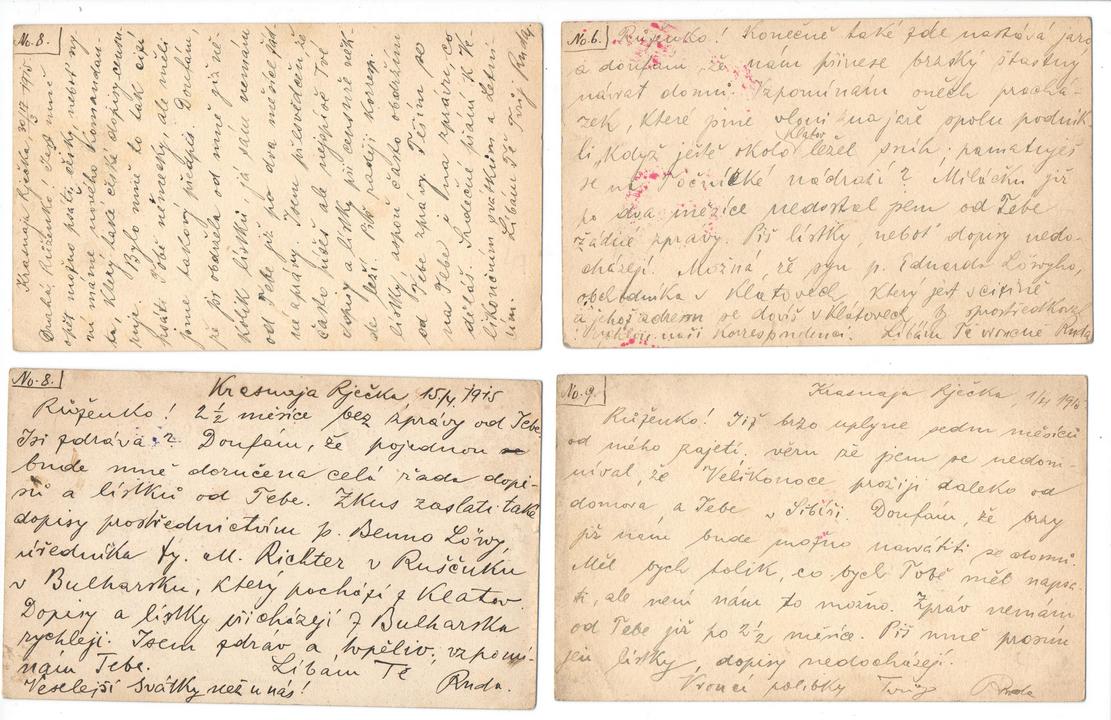 No. 8.
Krasnaja Rječka, 30/12 1915
3
Drahá Růženko! Teď smíme
opět možno psáti česky, neboť ny-
ní máme nového komandan-
ta, který také české dopisy censu-
ruje. Bylo mně to tak cizí
psáti Tobě německy, ale měli
jsme takový předpis. Doufám,
že jsi obdržela od mně již ně-
kolik lístků, já sám nemám
od Tebe již po dva měsíce žád-
né zprávy. Jsem přesvědčen že
často píšeš ale nejspíše Tvé
dopisy a lístky při censuře někde
leží. Piš raději korresp.
lístky, aspoň často obdržím
od Tebe zprávy. Těším se
na Tebe i na zprávu, co
děláš. Srdečné psaní k Ve-
likonočním svátkům a Letni-
cím. Líbám Tě Tvůj Ruda.
No. 6.
Růženko! Konečně také zde nastává jaro
a doufám, že nám přinese brzský šťastný
návrat domů. Vzpomínám oněch prochá-
zek, které jsme vloni na jaře spolu podnik-
li, když ještě okolo Klatov ležel sníh; pamatuješ
se na Točnické nádraží? Miláčku již
po dva měsíce nedostal jsem od Tebe
žádné zprávy. Piš lístky, neboť dopisy nedo-
cházejí. Možná, že syn p. Eduarda Löwyho,
obchodníka v Klatovech, který jest v cizině
a jehož adresu se dovíš v Klatovech, sprostředkoval
naši korrespondenci. Líbám Tě vroucně Ruda
No. 8.
Krasnaja Rječka, 15/4 1915
Růženko! 2 1/2 měsíce bez zprávy od Tebe.
Jsi zdráva? Doufám, že pojednou
bude mně doručena celá řada dopi-
sů a lístků od Tebe. Zkus zaslati také
dopisy prostřednictvím p. Benno Löwy,
úředníka fy. M. Richter v Ruščuku
v Bulharsku, který pochází z Klatov.
Dopisy a lístky přicházejí z Bulharska
rychleji. Jsem zdráv a trpěliv, vzpomí-
nám Tebe. Líbám Tě
Veselejší Svátky než u nás! Ruda.
No. 9.
Krasnaja Rječka, 1/4 1915
Růženko. Již brzo uplyne sedm měsíců
od mého zajetí, věru že jsem se nedom-
níval, že Velikonoce prožiji daleko od
domova a Tebe v Sibiři. Doufám, že brzy
již nám bude možno navrátiti se domů.
Měl bych tolik, co bych Tobě měl napsa-
ti, ale není nám to možno. Zpráv nemám
od Tebe již po 2 1/2 měsíce. Piš mně prosím
jen lístky, dopisy nedocházejí.
Vroucí polibky Tvůj Ruda